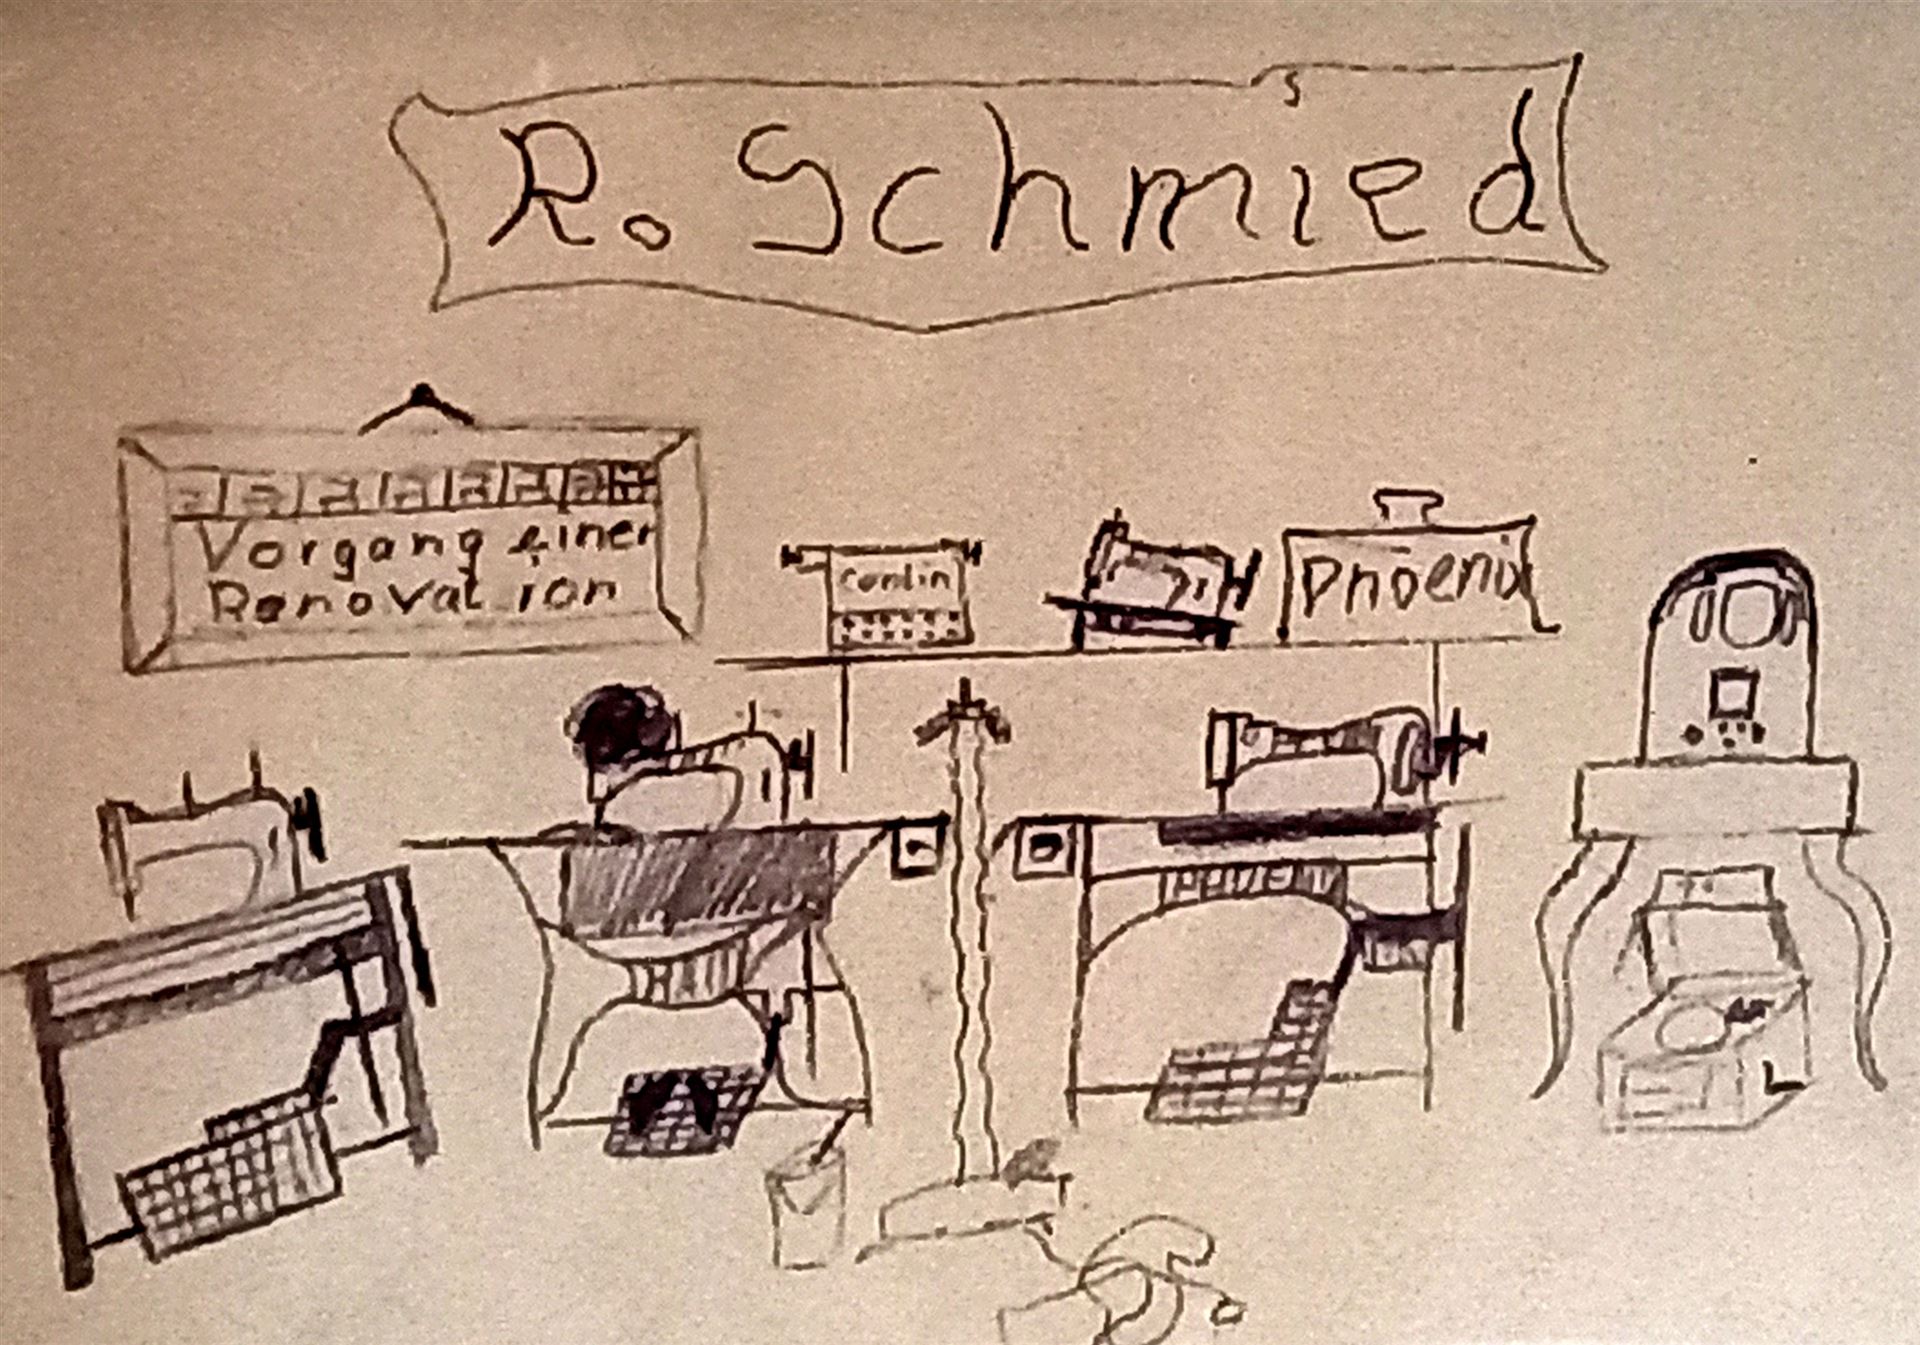 R. Schmied
Vorgang einer
Renovation
Contin
Phoenix